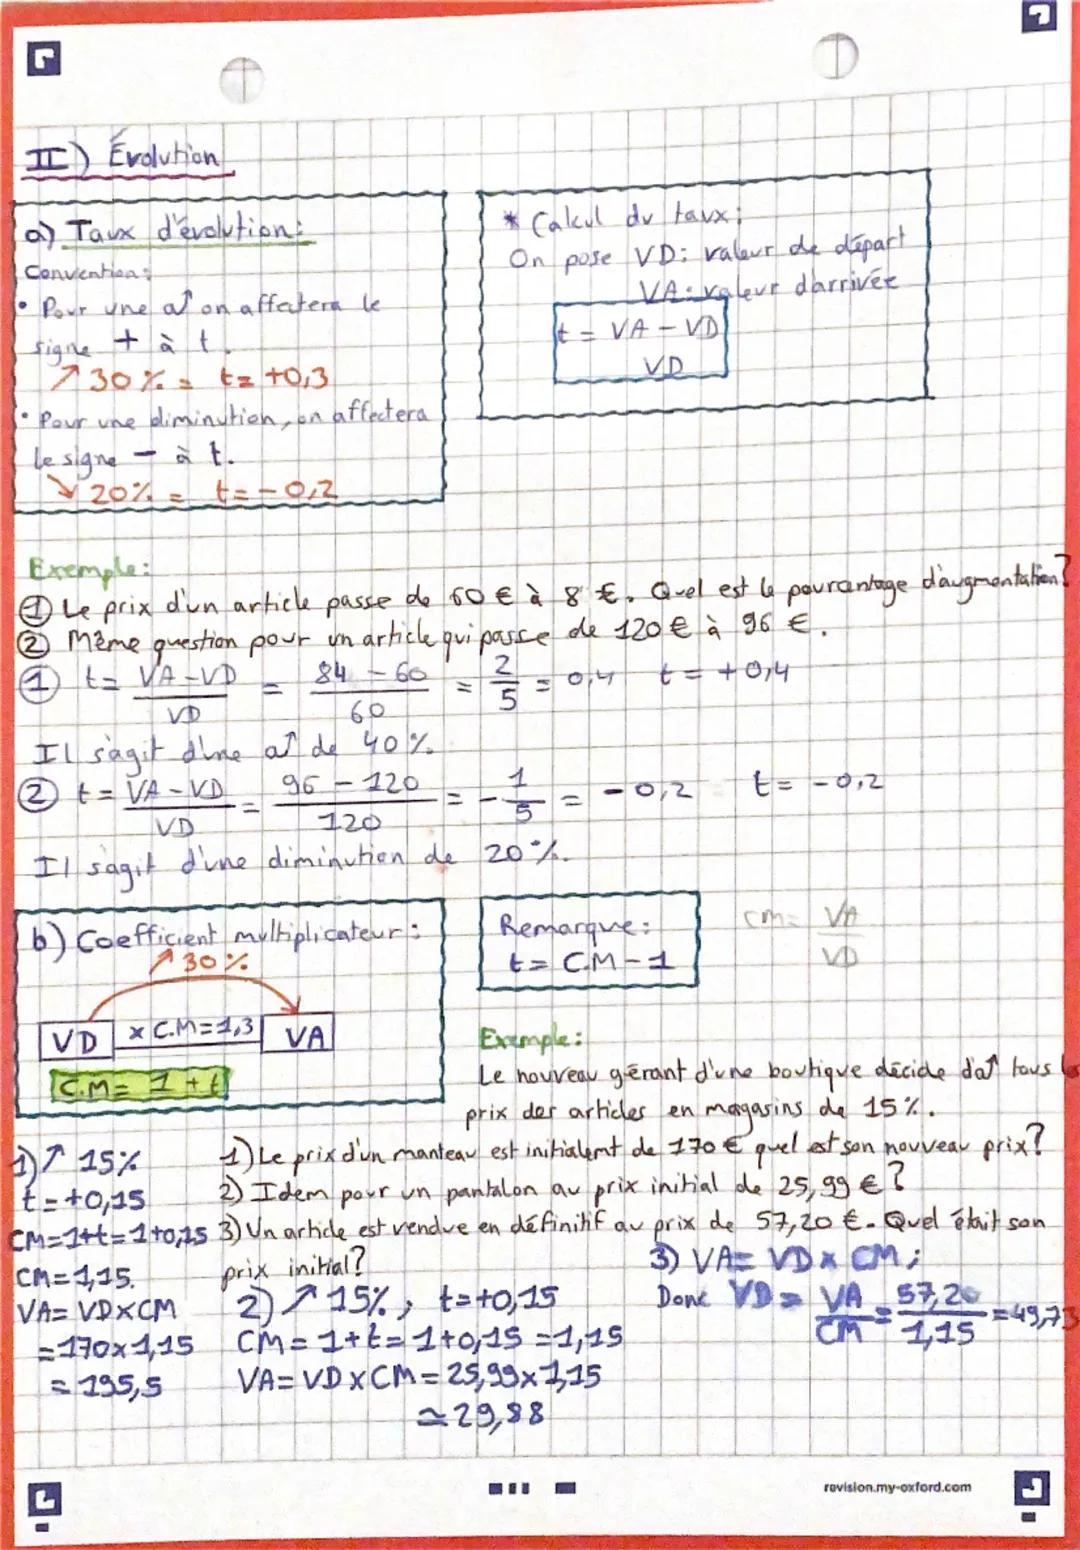 II) Évolution
a) Taux d'évolution:
Convention:
• Pour une a↑ on affectera le
signe + à t.
↗ 30 % = t= +0,3
• Pour une diminution, on affectera
le signe - à t.
↘ 20% = t= -0,2
* Calcul du taux:
On pose VD: valeur de départ
VA: valeur d'arrivée
t = VA - VD
VD
Exemple:
① Le prix d'un article passe de 60 € à 8 €. Quel est le pourcentage d'augmentation?
② Même question pour un article qui passe de 120 € à 96 €.
① t= VA-VD / VD = 84 - 60 / 60 = 2/5 = 0,4 t = +0,4
Il s'agit d'une a↑ de 40 %.
② t= VA-VD / VD = 96 - 120 / 120 = - 1/5 = -0,2 t= -0,2
Il s'agit d'une diminution de 20 %.
b) Coefficient multiplicateur:
↗ 30 %
VD x C.M=1,3 VA
C.M= 1 + t
Remarque:
t= C.M-1
CM= VA
VD
Exemple:
Le nouveau gérant d'une boutique décide d'a↑ tous les
prix des articles en magasins de 15%.
1) Le prix d'un manteau est initialemt de 170 € quel est son nouveau prix?
2) Idem pour un pantalon au prix initial de 25,99 €?
3) Un article est vendue en définitif au prix de 57,20 €. Quel était son
prix initial?
1) ↗ 15%
t=+0,15
CM=1+t=1+0,15
CM=1,15.
VA= VDxCM
=170x1,15
= 195,5
2) ↗ 15%, t=+0,15
CM= 1+t= 1+0,15 =1,15
VA= VD x CM= 25,99x1,15
≃29,88
3) VA= VD x CM;
Donc VD = VA / CM = 57,20 / 1,15 = 49,73
revision.my-oxford.com